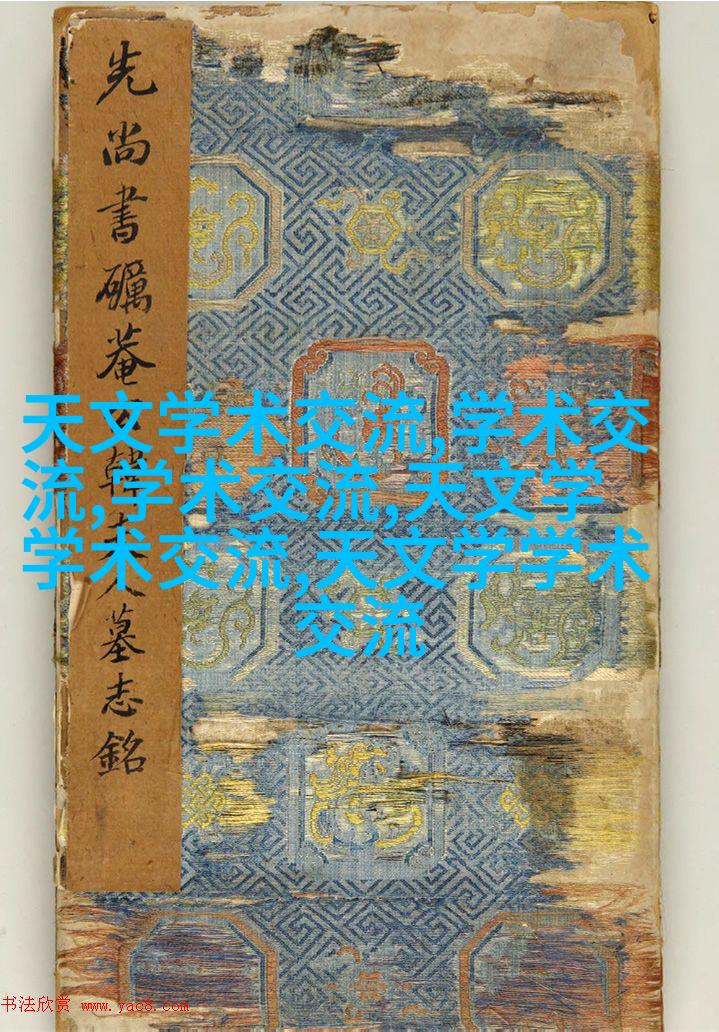 先尚書礪菴
韓夫人墓志銘
天文学术交流,学术交
流,学术交流,天文学
学术交流,天文学学术
交流
书法欣赏 www.yac8.com